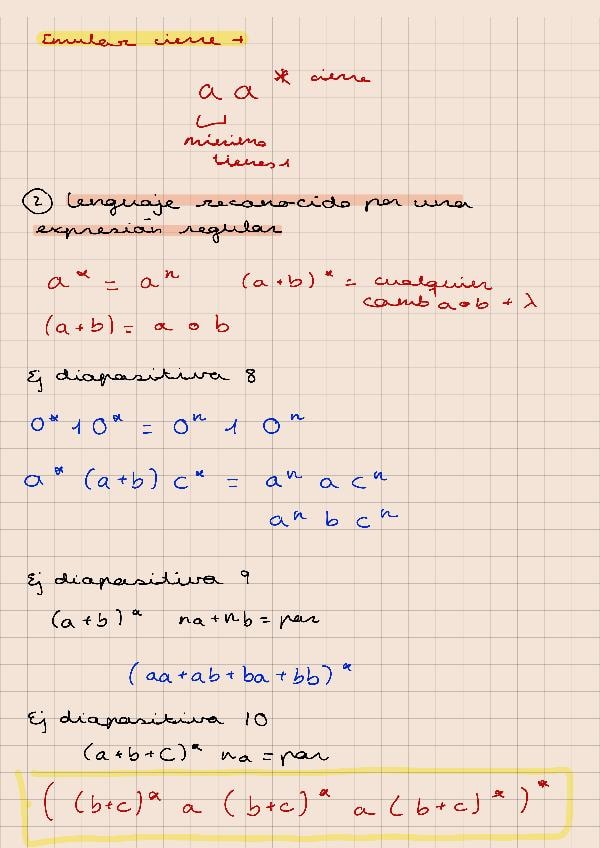 Emular cierre +
a a * cierre
mínimo
tienes 1
② Lenguaje reconocido por una
expresión regular
a* = aⁿ (a+b)* = cualquier
comb a o b + λ
(a+b) = a o b
Ej diapositiva 8
0* 1 0* = 0ⁿ 1 0ⁿ
a* (a+b) c* = aⁿ a cⁿ
aⁿ b cⁿ
Ej diapositiva 9
(a+b)* na+nb = par
(aa+ab+ba+bb)*
Ej diapositiva 10
(a+b+c)* na = par
((b+c)* a (b+c)* a (b+c)*)*